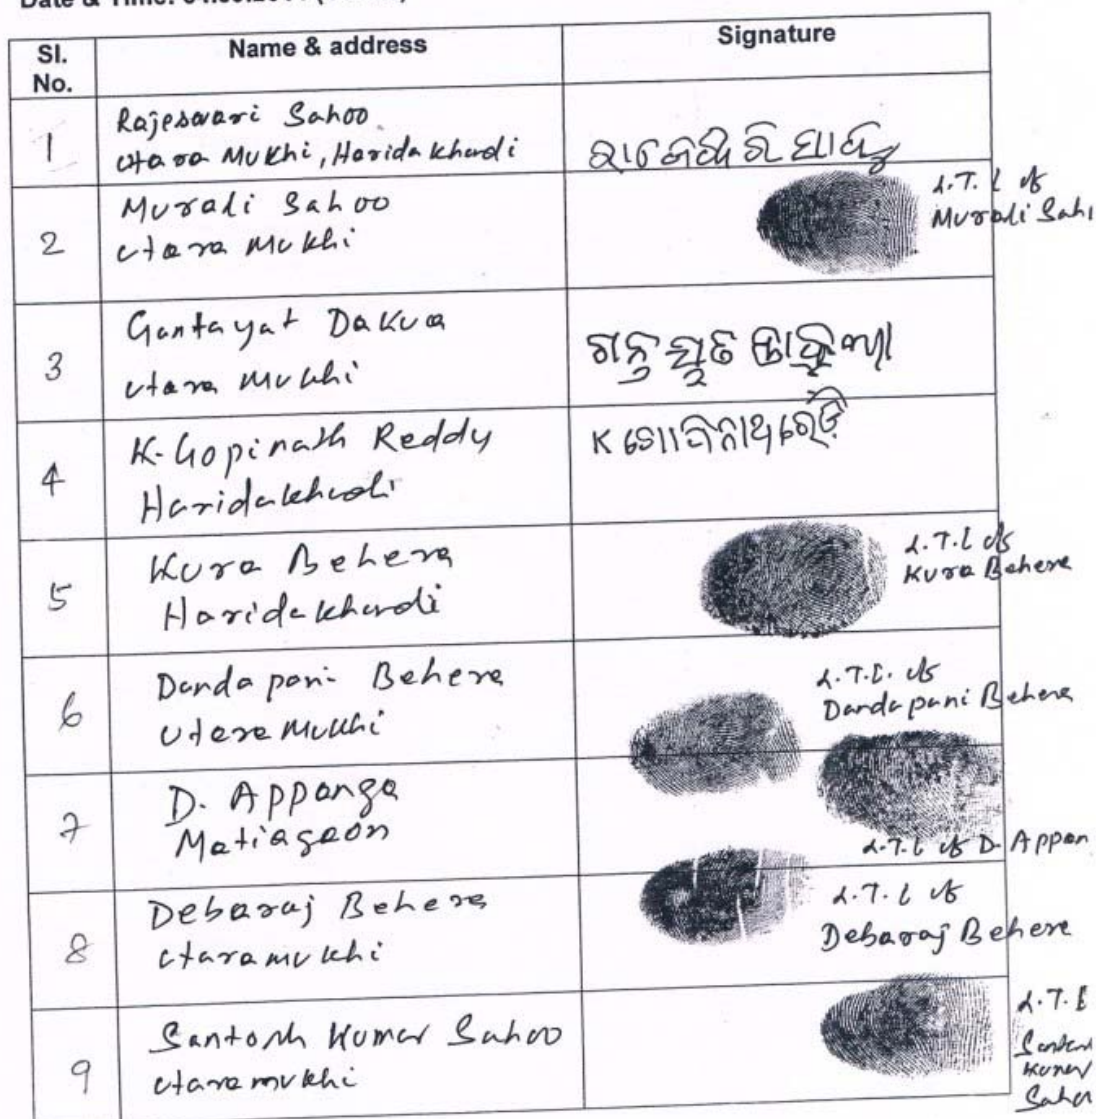 Date & Time:
Sl. No.
Name & address
Signature
1
Rajeswari Sahoo
Utara Mukhi, Haridakhandi
2
Murali Sahoo
Utara Mukhi
L.T.I of
Murali Sah
3
Gantayat Dakua
Utara Mukhi
4
K. Gopinath Reddy
Haridakhandi
K ଗୋପିନାଥ ରେଡ଼ି
5
Kura Behera
Haridakhandi
L.T.I of
Kura Behera
6
Dandapani Behera
Utara Mukhi
L.T.I. of
Dandapani Behera
7
D. Appanga
Matiagaon
L.T.I of D. Appan
8
Debaraj Behera
Utaramukhi
L.T.I of
Debaraj Behera
9
Santosh Kumar Sahoo
Utaramukhi
L.T.I
Santosh
Kumar
Sahoo